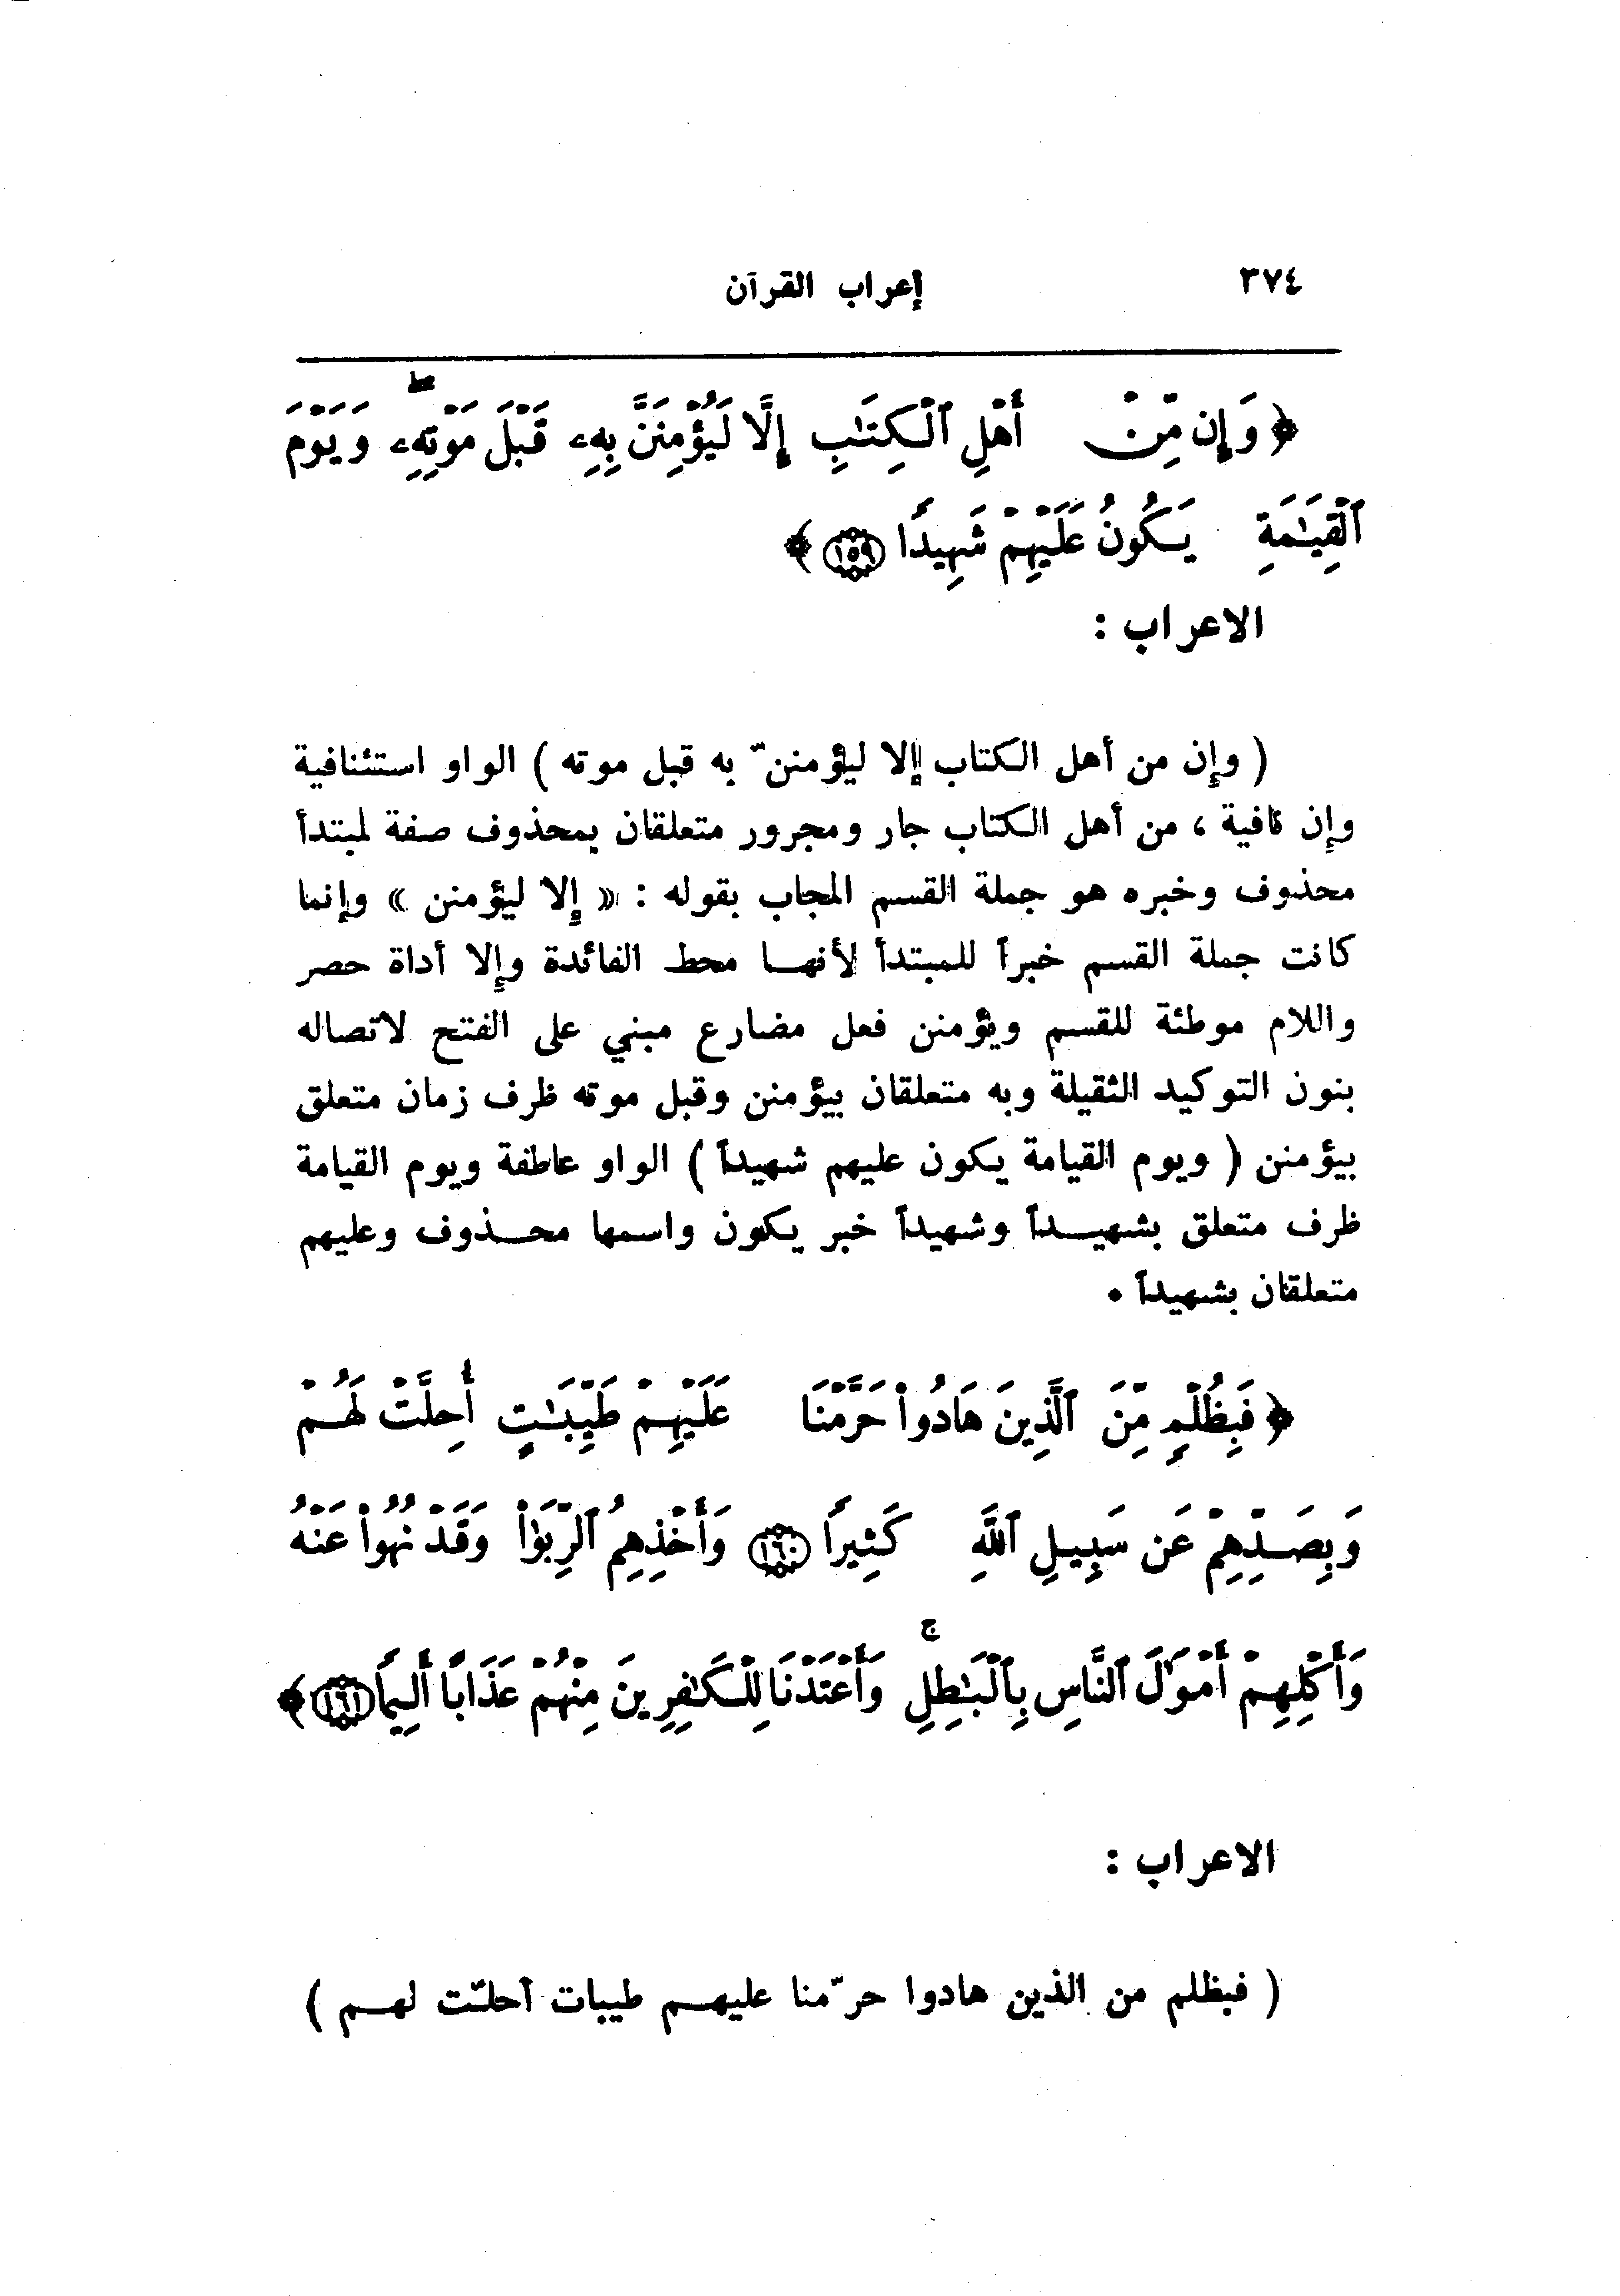 ٣٧٤
إعراب القرآن
﴿ وَإِن مِّنْ أَهْلِ ٱلْكِتَٰبِ إِلَّا لَيُؤْمِنَنَّ بِهِۦ قَبْلَ مَوْتِهِۦۖ وَيَوْمَ
ٱلْقِيَٰمَةِ يَكُونُ عَلَيْهِمْ شَهِيدًا ١٥٩ ﴾
الاعراب :
( وإن من أهل الكتاب إلا ليؤمننّ به قبل موته ) الواو استئنافية
وإن نافية ، من أهل الكتاب جار ومجرور متعلقان بمحذوف صفة لمبتدأ
محذوف وخبره هو جملة القسم المجاب بقوله : « إلا ليؤمنن » وإنما
كانت جملة القسم خبراً للمبتدأ لأنهــا محط الفائدة وإلا أداة حصر
واللام موطئة للقسم ويؤمنن فعل مضارع مبني على الفتح لاتصاله
بنون التوكيد الثقيلة وبه متعلقان بيؤمنن وقبل موته ظرف زمان متعلق
بيؤمنن ( ويوم القيامة يكون عليهم شهيداً ) الواو عاطفة ويوم القيامة
ظرف متعلق بشهيــداً وشهيداً خبر يكون واسمها محــذوف وعليهم
متعلقان بشهيداً .
﴿ فَبِظُلْمٍ مِّنَ ٱلَّذِينَ هَادُوا۟ حَرَّمْنَا عَلَيْهِمْ طَيِّبَٰتٍ أُحِلَّتْ لَهُمْ
وَبِصَدِّهِمْ عَن سَبِيلِ ٱللَّهِ كَثِيرًا ١٦٠ وَأَخْذِهِمُ ٱلرِّبَوٰا۟ وَقَدْ نُهُوا۟ عَنْهُ
وَأَكْلِهِمْ أَمْوَٰلَ ٱلنَّاسِ بِٱلْبَٰطِلِۚ وَأَعْتَدْنَا لِلْكَٰفِرِينَ مِنْهُمْ عَذَابًا أَلِيمًا ١٦١ ﴾
الاعراب :
( فبظلم من الذين هادوا حرّمنا عليهــم طيبات أحلّت لهــم )